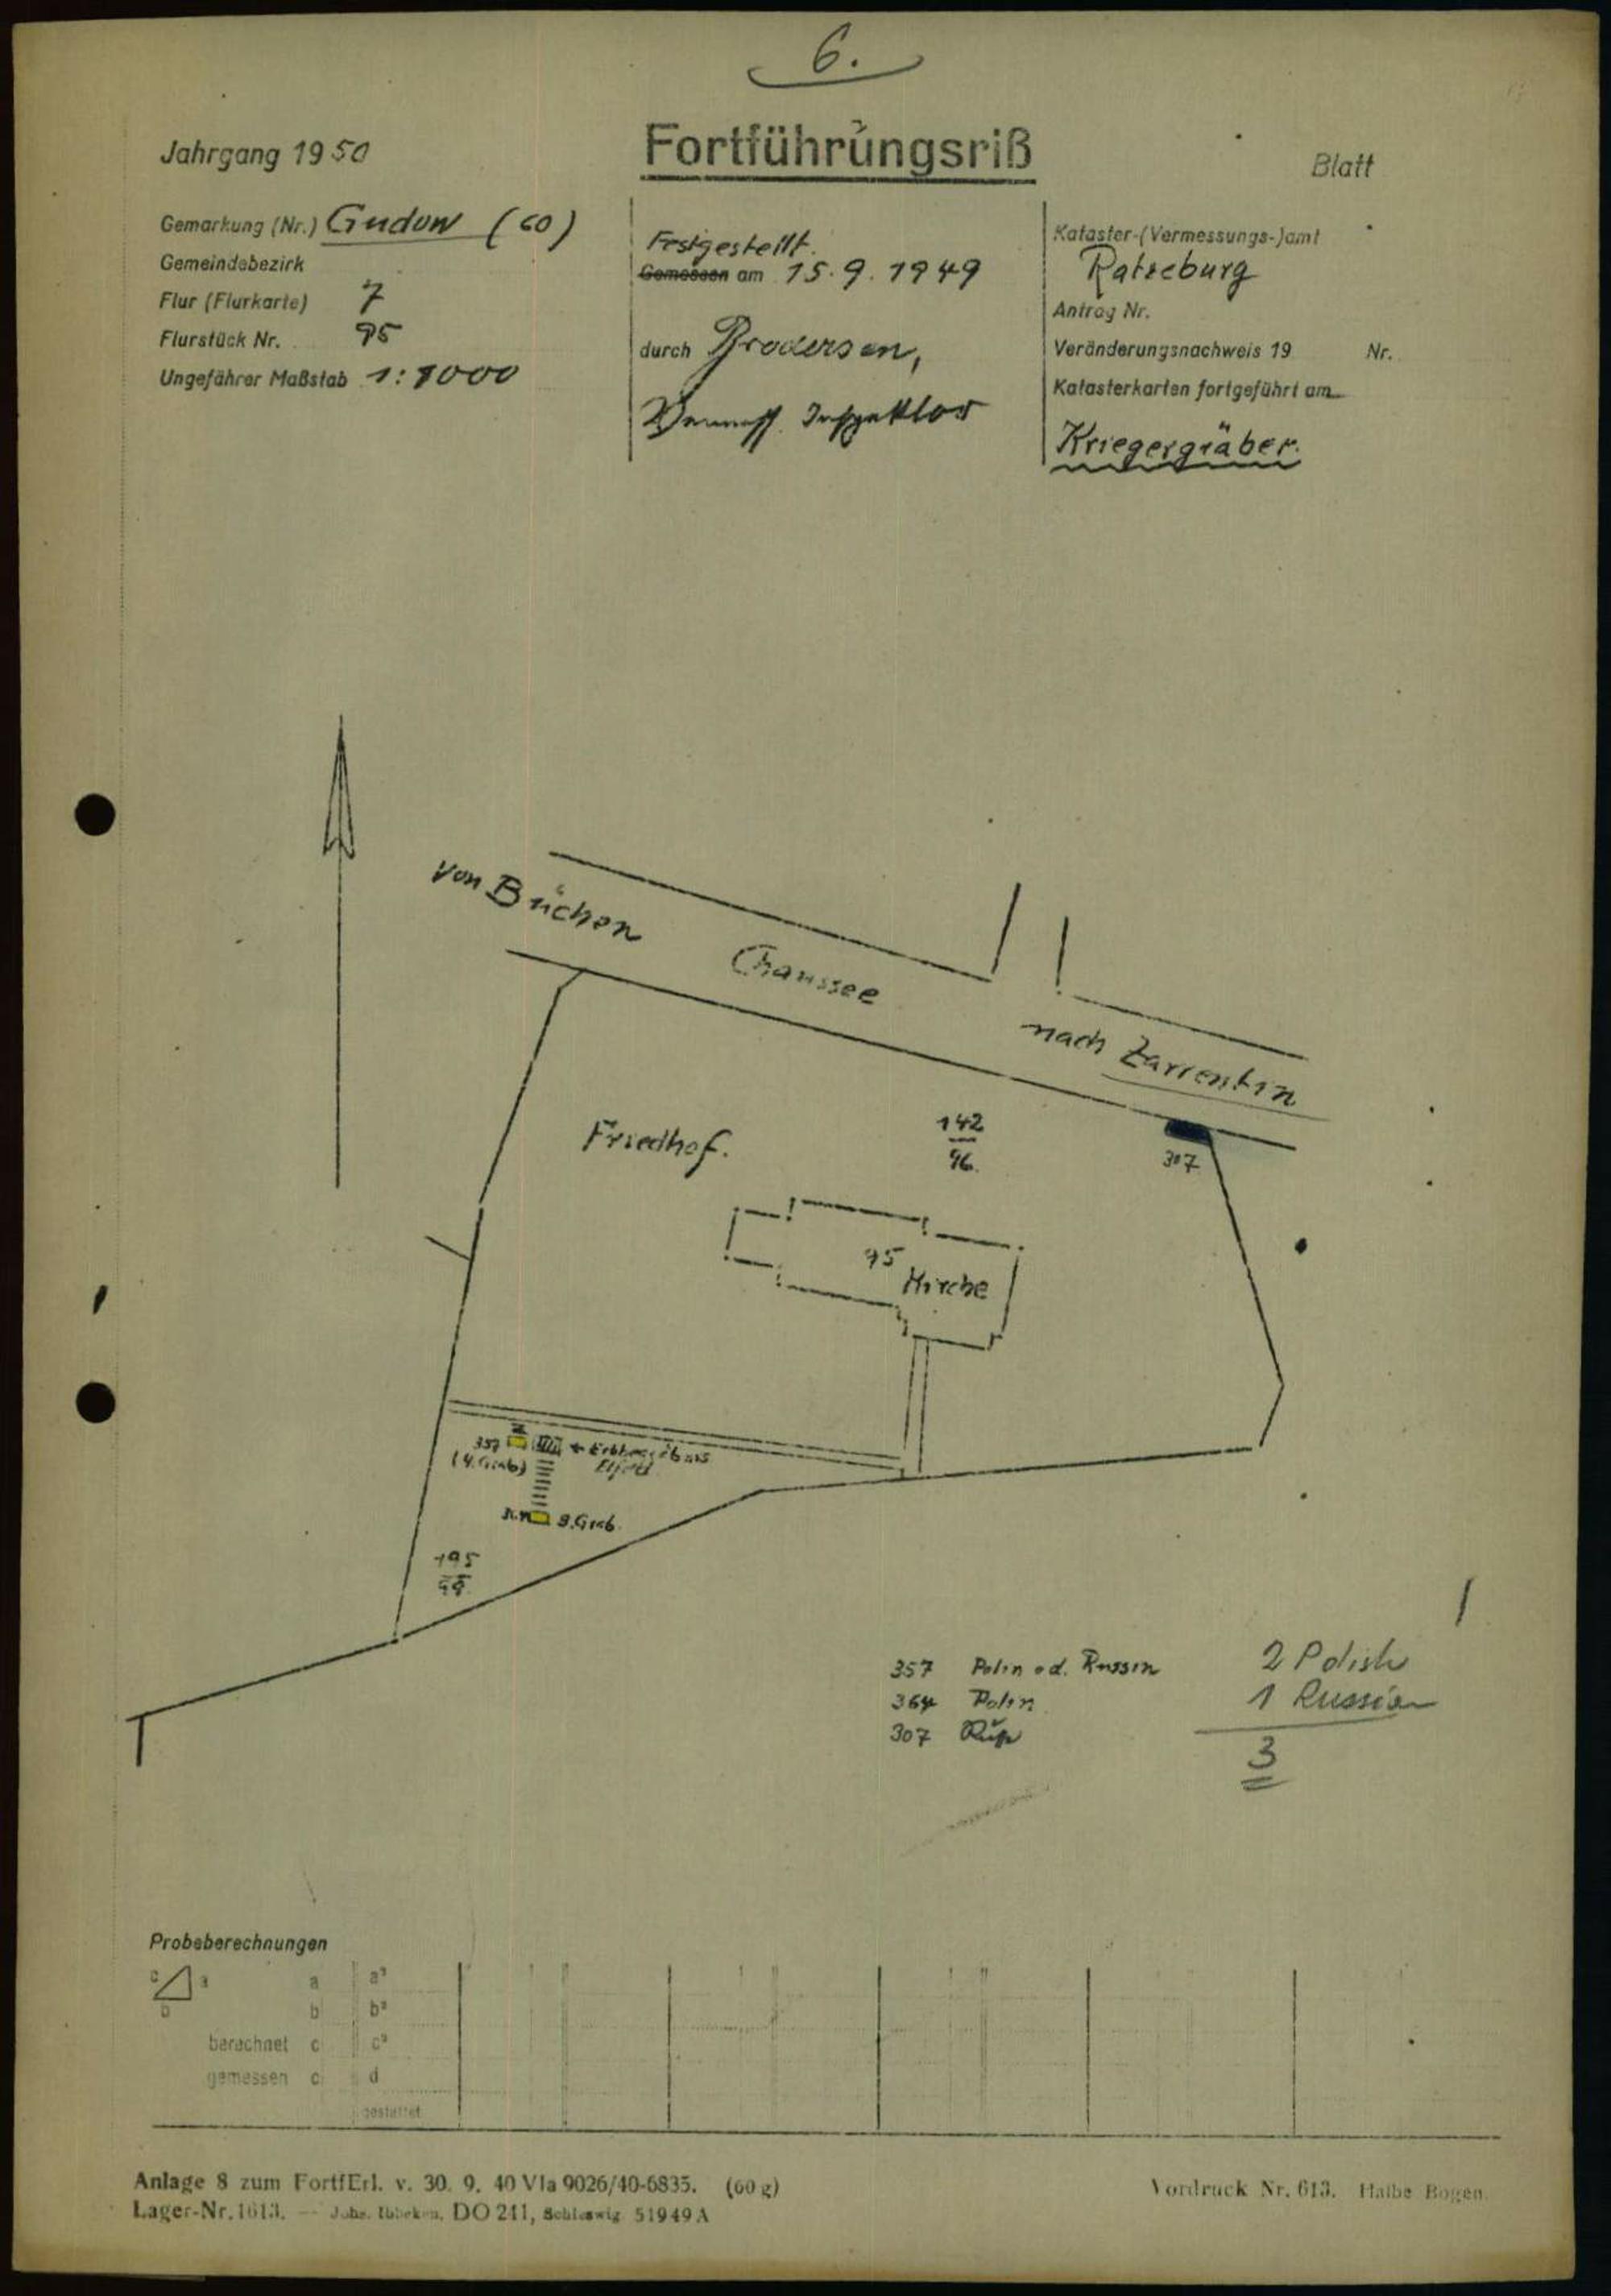 6.
Jahrgang 1950
Fortführungsriß
Blatt
Gemarkung (Nr.) Gudow (60)
Gemeindebezirk
Flur (Flurkarte) 7
Flurstück Nr. 95
Ungefährer Maßstab 1:1000
Festgestellt.
Gemessen am 15.9.1949
durch Brodersen,
Vermess. Inspektor
Kataster-(Vermessungs-)amt
Ratzeburg
Antrag Nr.
Veränderungsnachweis 19 Nr.
Katasterkarten fortgeführt am
Kriegergräber.
von Büchen
Chaussee
nach Zarrentin
Friedhof.
142
96.
307
95
Kirche
357
(4. Grab)
← Erbbegräbnis
364 9. Grab.
195
357 Polin od. Russin
364 Polin
307 Ruße
2 Polish
1 Russian
3
Probeberechnungen
c a
b
a a²
b b²
berechnet c c²
gemessen c d
gestattet
Anlage 8 zum FortfErl. v. 30. 9. 40 VIa 9026/40-6835. (60 g)
Lager-Nr. 1613. — Johs. Ibbeken, DO 241, Schleswig 51949 A
Vordruck Nr. 613. Halbe Bogen.